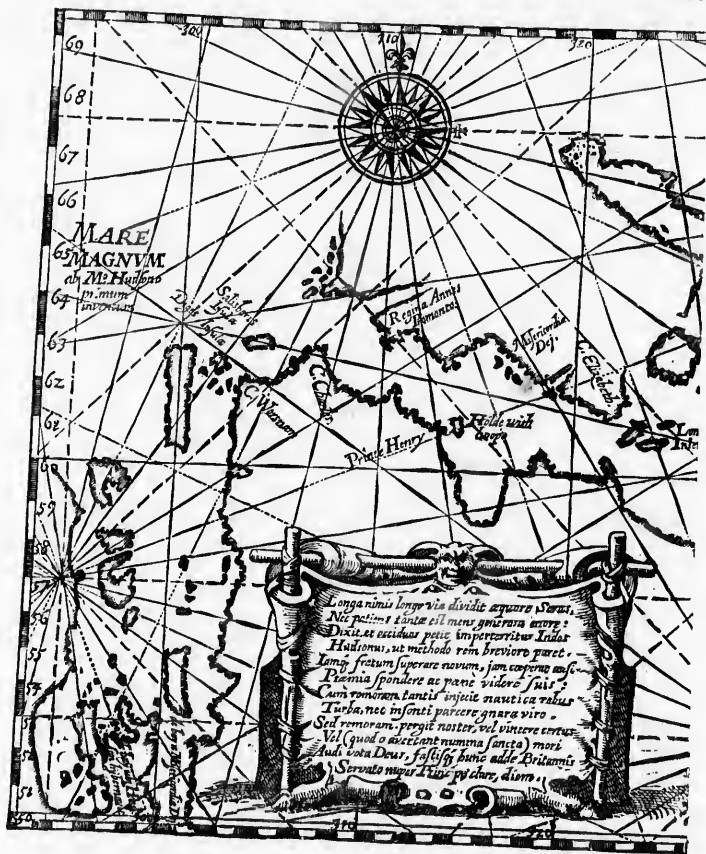 300
310
320
69
68
67
66
65
64
63
62
61
60
59
58
57
55
54
51
50
MARE
MAGNVM
ab Mº Hudsono
primum
inventum
Salisberis
Insula
Digs Insula
Regina Annes
Misericordia
Dej.
C. Elisabeth
C. Worsnam
Prince Henry
Holde with
hoope
Longa nimis longo via dividit æquore Seras,
Nec patiens tantæ est mens generosa moræ:
Dixit, et occiduos petit imperterritus Indos
Hudsonus, ut methodo rem breviore paret.
Iamq; fretum superare novum, jam cœperat
Præmia spondere ac pæne videre suis:
Cum remoram tantis injicit nautica rebus
Turba, nec insonti parcere gnara viro.
Sed remoram pergit noster, vel vincere certus
Vel (quod o avertant numina sancta) mori
Audi vota Deus, fastisq; hunc adde Britannis
Servato nuper clare, diem.
310
320